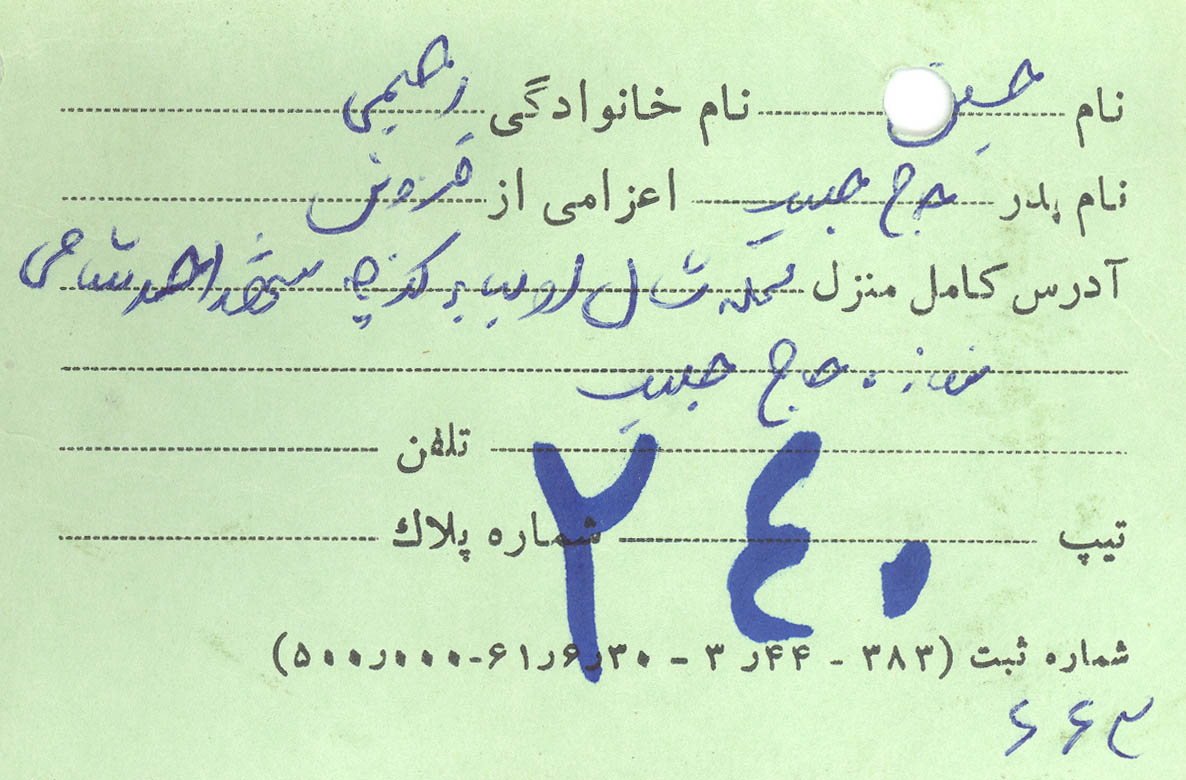 نام حسین نام خانوادگی رحیمی
نام پدر حاج حبیب اعزامی از قزوین
آدرس کامل منزل محله شال کوچه شهید احمد
مغازه حاج حبیب
تلفن
۲۴۰
تیپ شماره پلاك
شماره ثبت (۳۸۳ - ۴۴ر۳ - ۳۰ر۶ر۶۱-۰۰۰ر۵۰۰)
۶۶۳